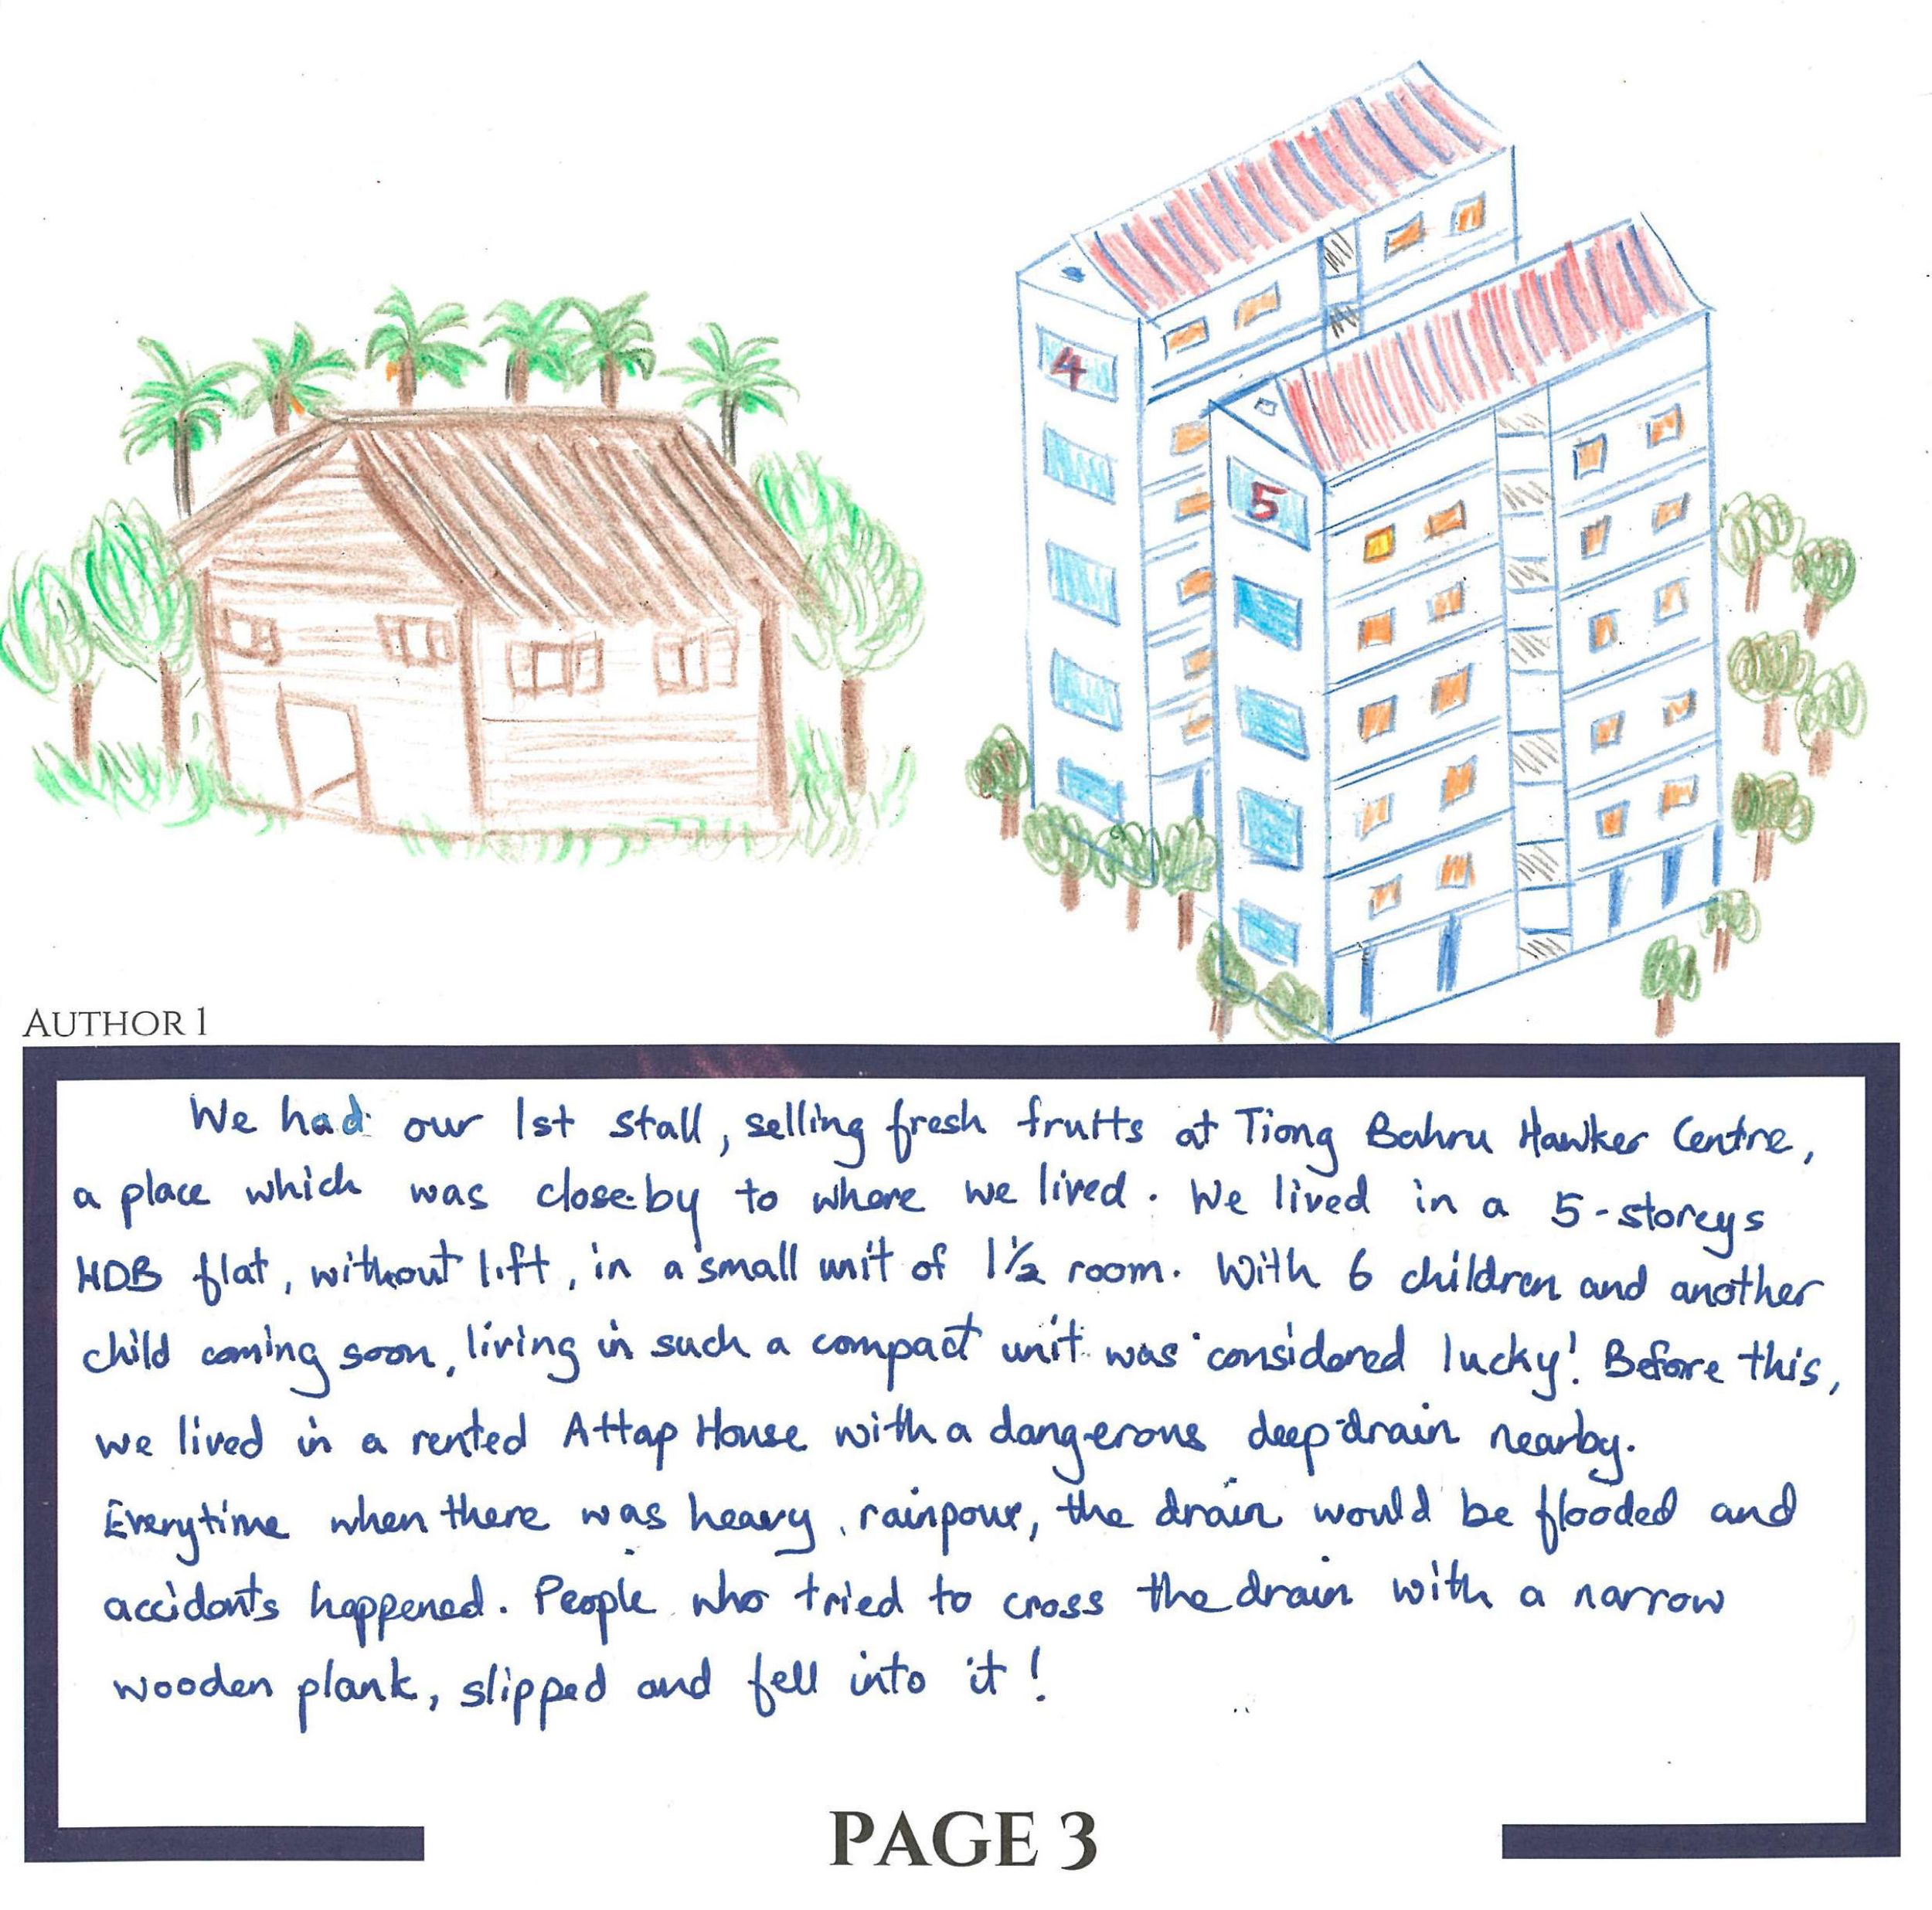 4
5
AUTHOR 1
We had our 1st stall, selling fresh fruits at Tiong Bahru Hawker Centre,
a place which was closeby to where we lived. We lived in a 5-storeys
HDB flat, without lift, in a small unit of 1½ room. With 6 children and another
child coming soon, living in such a compact unit was considered lucky! Before this,
we lived in a rented Attap House with a dangerous deep drain nearby.
Everytime when there was heavy rainpour, the drain would be flooded and
accidents happened. People who tried to cross the drain with a narrow
wooden plank, slipped and fell into it!
PAGE 3